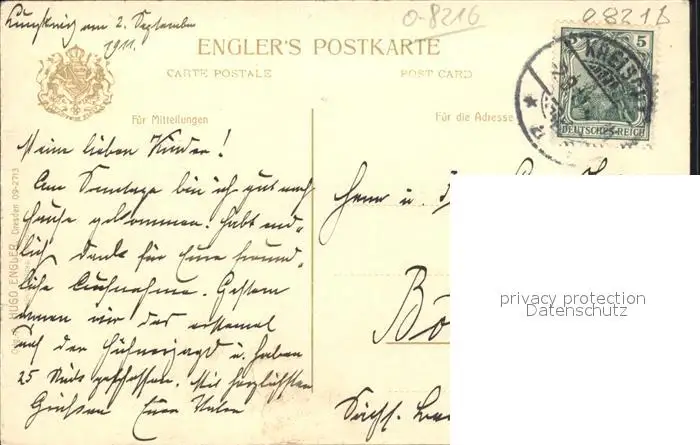 am 2. September
1911.
0-8216
08216
ENGLER'S POSTKARTE
CARTE POSTALE
POST CARD
Für Mitteilungen
Für die Adresse
KREISCHA
5
DEUTSCHES REICH
Meine lieben Kinder!
Am Sonntage bin ich gut nach
Hause gekommen. Habt end-
lich Dank für Eure freund-
liche Aufnahme. Gestern
waren wir das erstemal
auf der Hühnerjagd u. haben
25 Stück geschossen. Mit herzlichsten
Grüßen Euer Vater
Herrn u.
Bö
Sächs.
HUGO ENGLER, Dresden 09-2713
privacy protection
Datenschutz